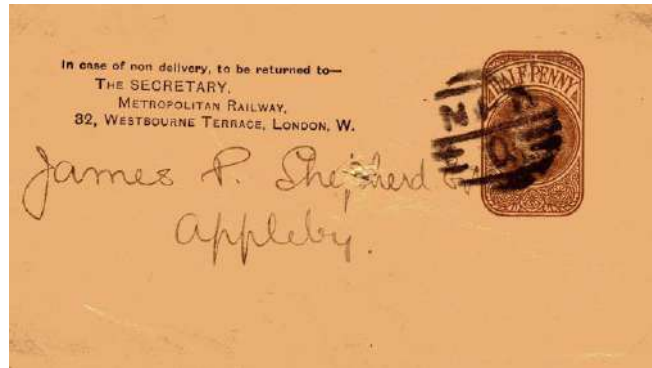 In case of non delivery, to be returned to—
THE SECRETARY,
METROPOLITAN RAILWAY,
32, WESTBOURNE TERRACE, LONDON, W.
HALFPENNY
James P. Shepherd
Appleby.